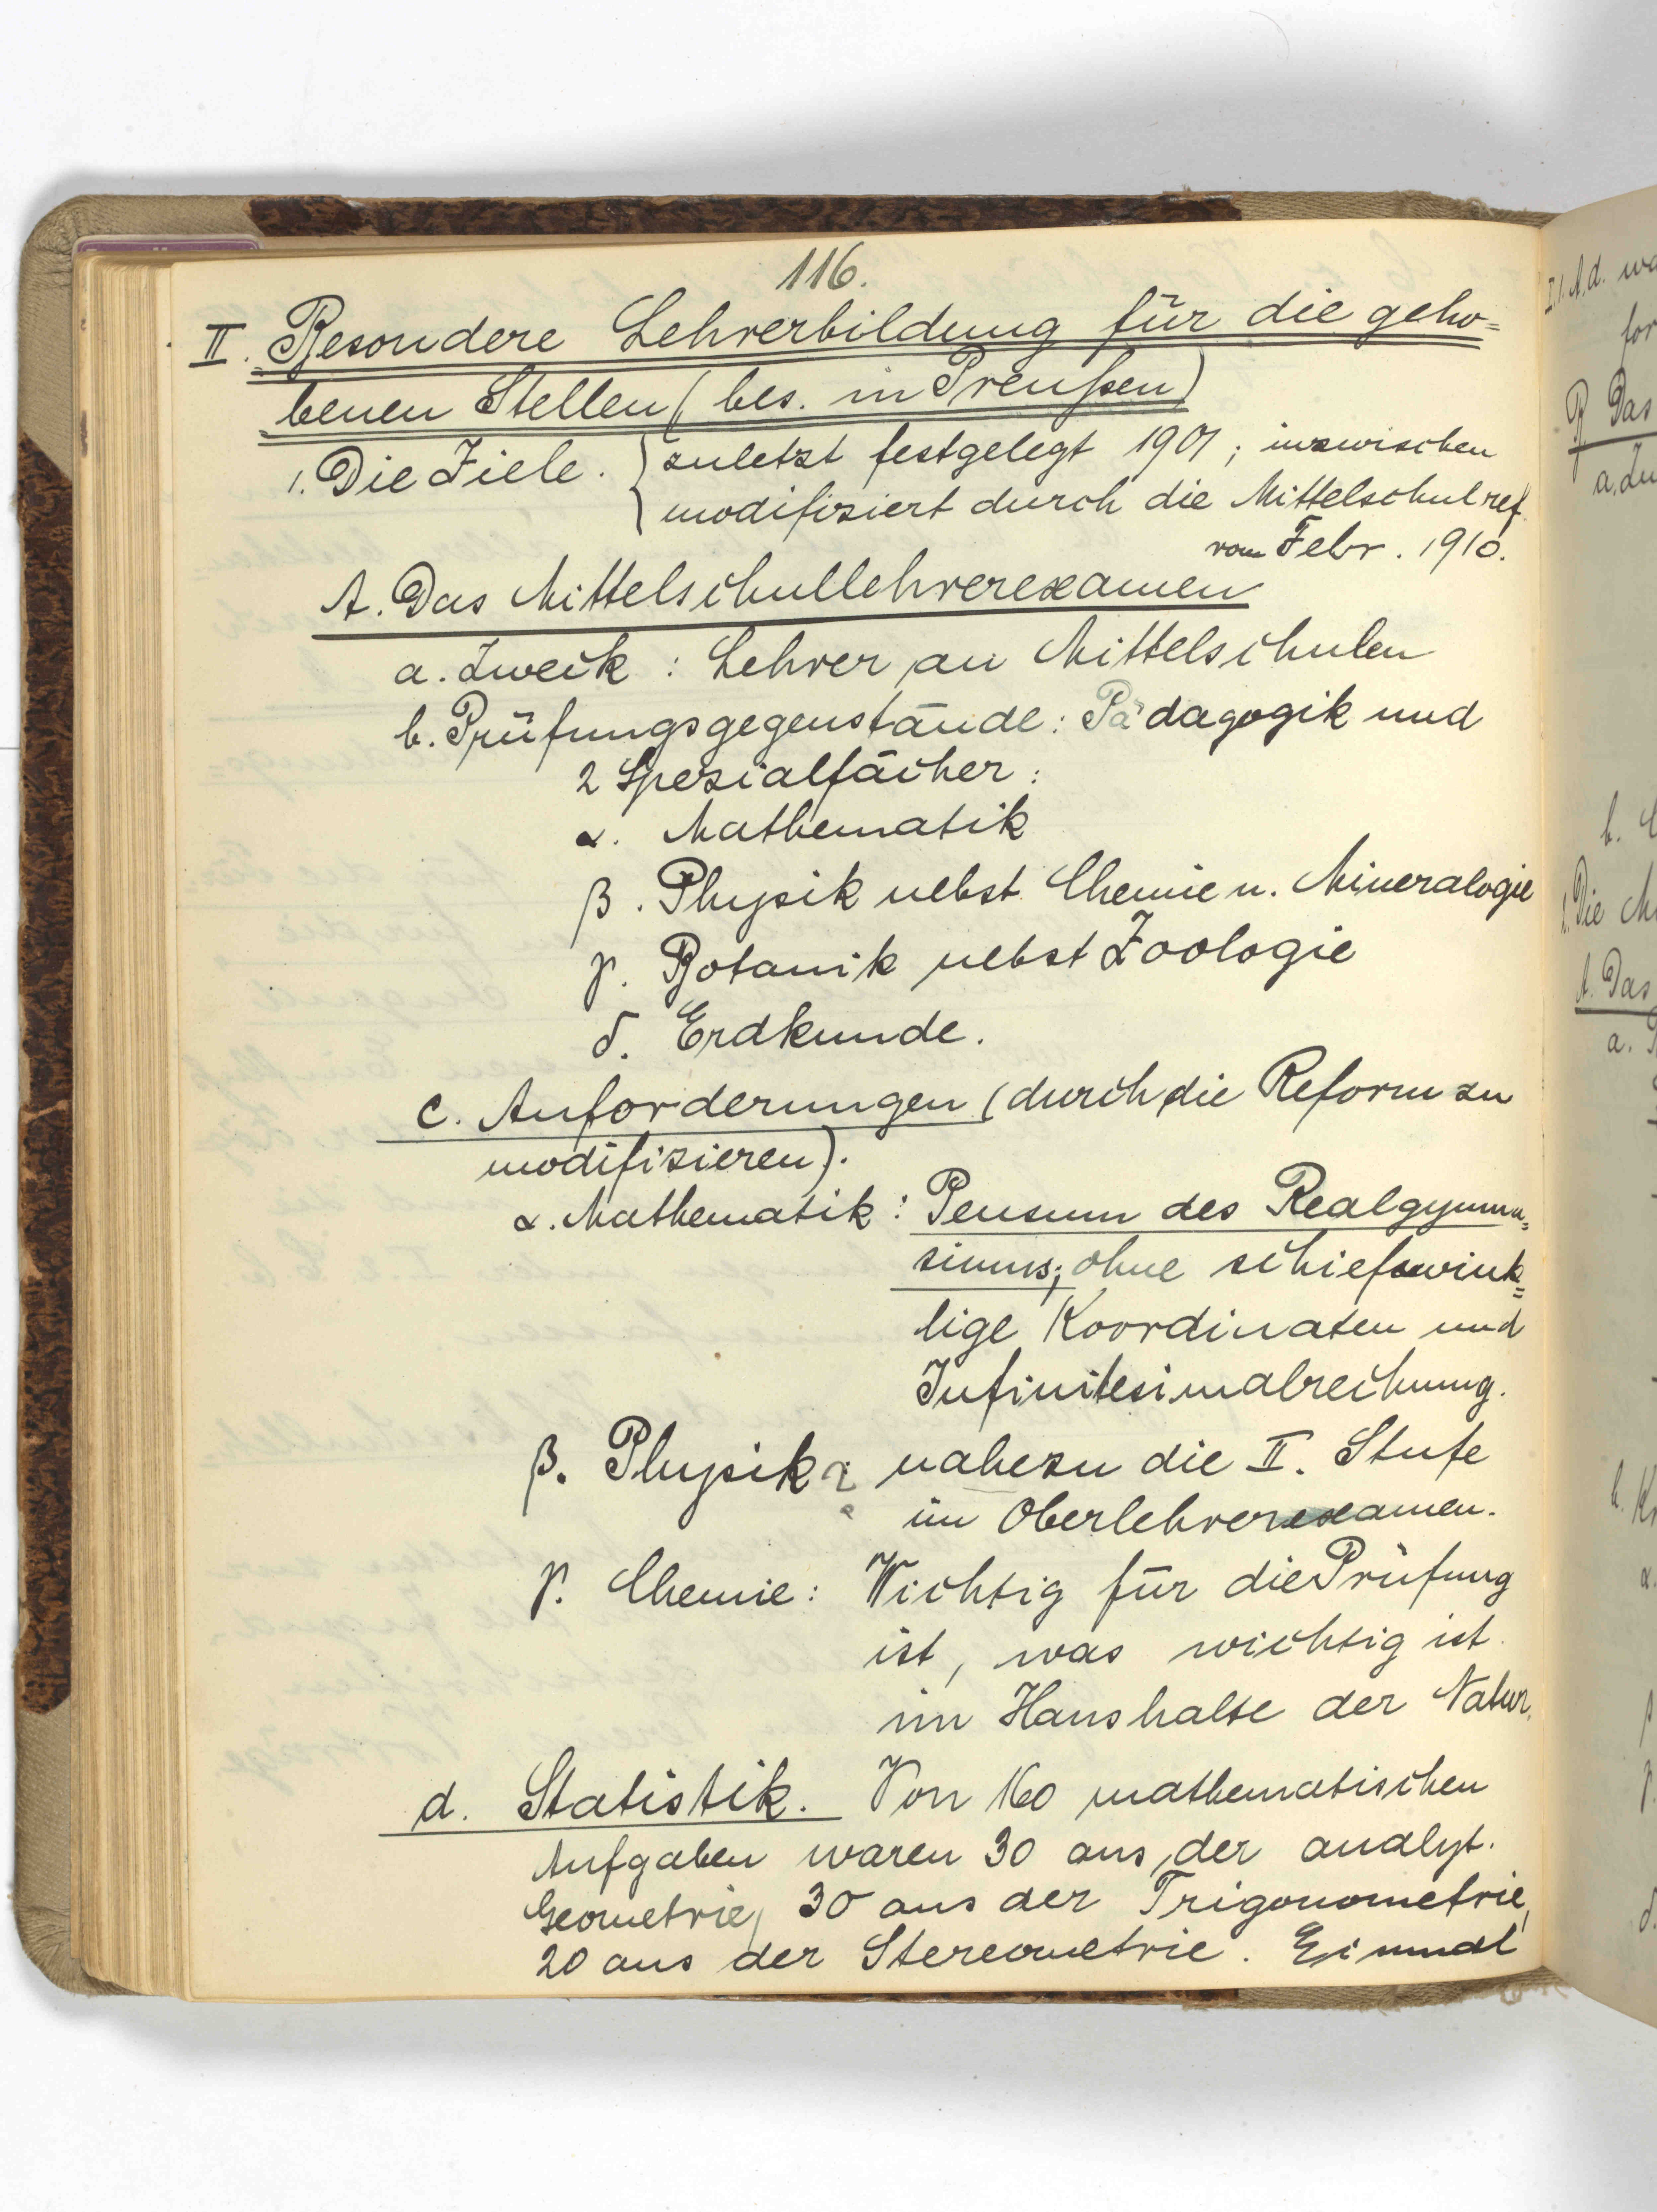 116.
II. Besondere Lehrerbildung für die geho=
benen Stellen (bes. in Preußen)
1. Die Ziele. { zuletzt festgelegt 1901; inzwischen
modifiziert durch die Mittelschulref.
vom Febr. 1910.
A. Das Mittelschullehrerexamen
a. Zweck : Lehrer an Mittelschulen
b. Prüfungsgegenstände: Pädagogik und
2 Spezialfächer:
α. Mathematik
β. Physik nebst Chemie u. Mineralogie
γ. Botanik nebst Zoologie
δ. Erdkunde.
c. Anforderungen (durch die Reform zu
modifizieren).
α. Mathematik: Pensum des Realgymna=
siums; ohne schiefwink=
lige Koordinaten und
Infinitesimalrechnung.
β. Physik: nahezu die II. Stufe
im Oberlehrerexamen.
γ. Chemie: Wichtig für die Prüfung
ist, was wichtig ist
im Haushalte der Natur.
d. Statistik. Von 160 mathematischen
Aufgaben waren 30 aus der analyt.
Geometrie, 30 aus der Trigonometrie,
20 aus der Stereometrie. Einmal
I.1.A.d.
B. Das
a.
b.
Die
A. Das
a.
b.
α.
β
γ.
δ.